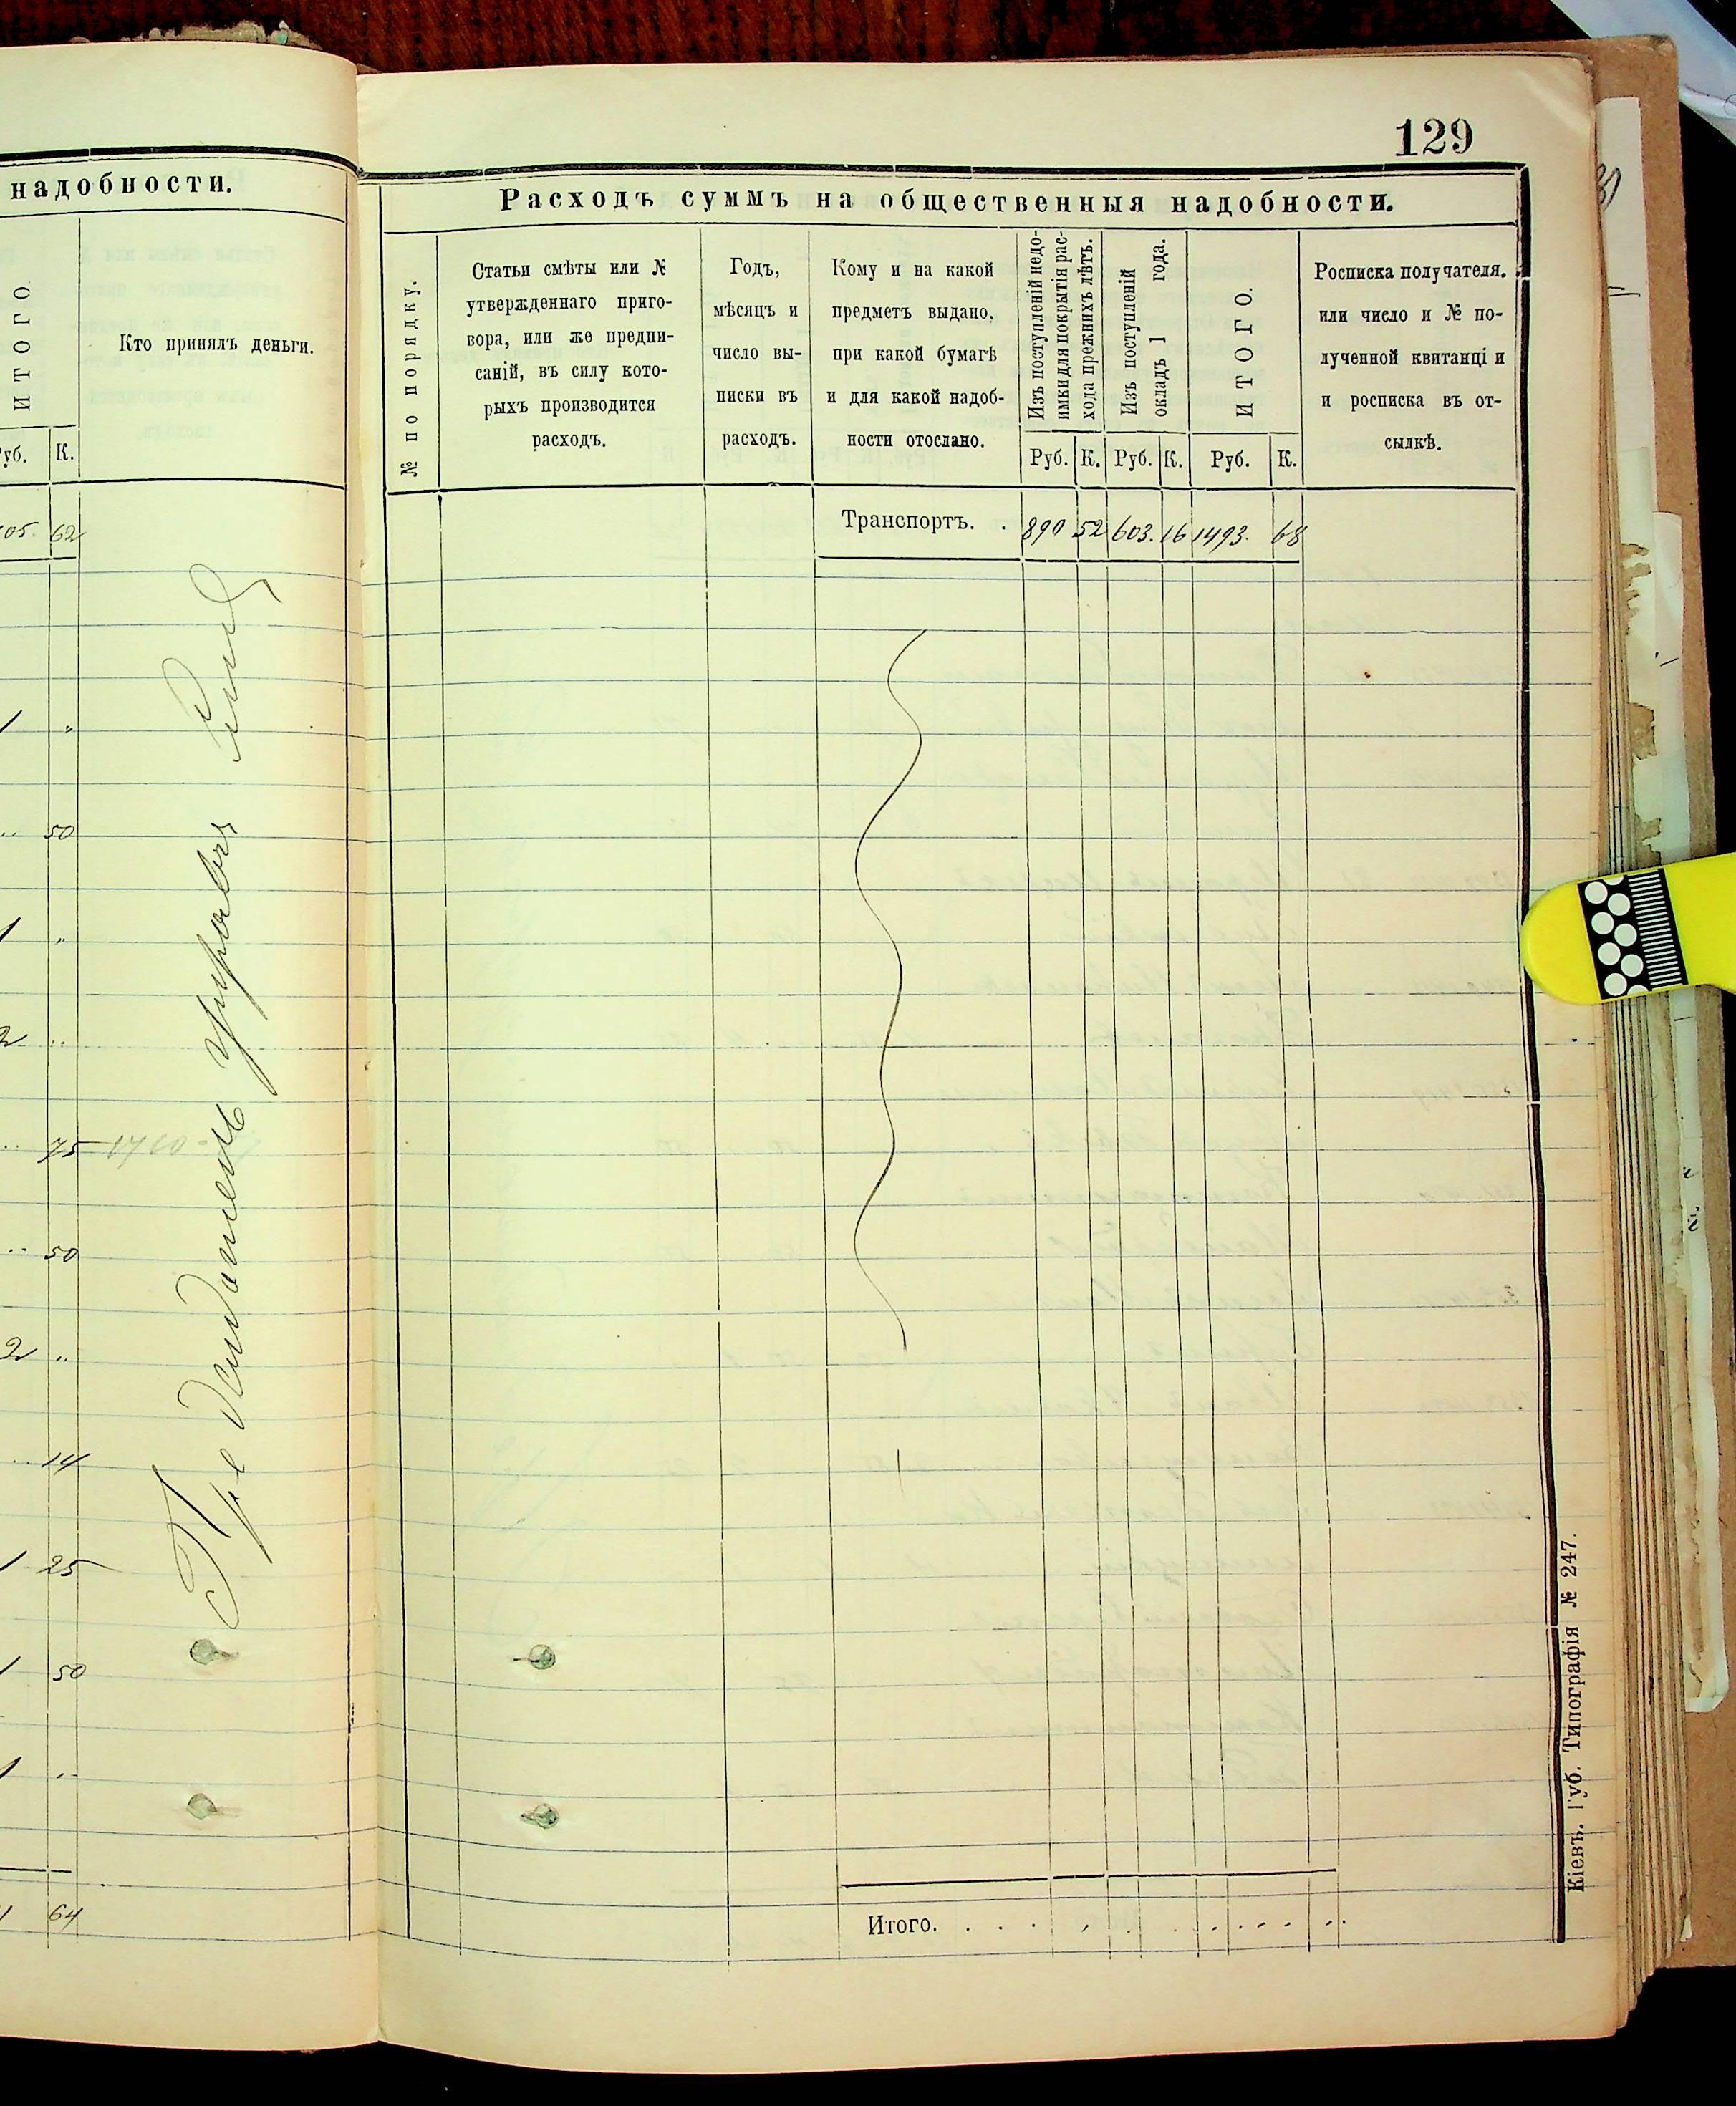 129
надобности.
И Т О Г О.
Кто принялъ деньги.
Руб. К.
05. 62
1 "
.. 50
1 "
2 ..
.. 75
.. 50
2 ..
.. 14
1 25
1 50
1 ..
1 64
Расходъ суммъ на общественныя надобности.
№ по порядку.
Статьи смѣты или №
утвержденнаго приго-
вора, или же предпи-
саній, въ силу кото-
рыхъ производится
расходъ.
Годъ,
мѣсяцъ и
число вы-
писки въ
расходъ.
Кому и на какой
предметъ выдано,
при какой бумагѣ
и для какой надоб-
ности отослано.
Изъ поступленій недо-
имки для покрытія рас-
хода прежнихъ лѣтъ.
Изъ поступленій
окладъ 1 года.
И Т О Г О.
Росписка получателя.
или число и № по-
лученной квитанці и
и росписка въ от-
сылкѣ.
Руб. К. Руб. К. Руб. К.
Транспортъ. . 890 52 603. 16 1493. 68
Итого. . . .
Кіевъ. Губ. Типографія № 247.